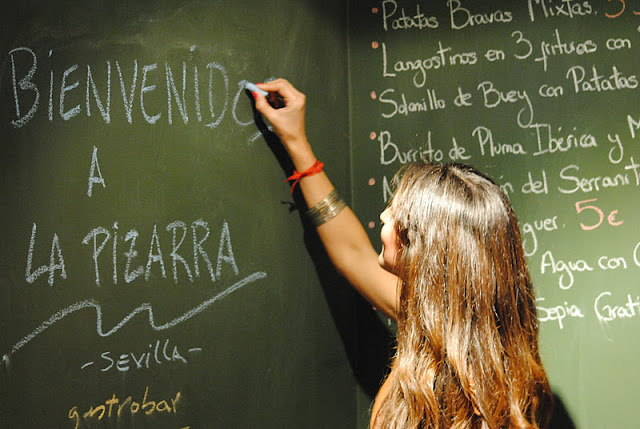 BIENVENIDO
A
LA PIZARRA
-SEVILLA-
gastrobar
Patatas Bravas Mixtas. 3
Langostinos en 3 frituras con
Solomillo de Buey con Patatas
Burrito de Pluma Ibérica y M
del Serranit
guer. 5€
Agua con
Sepia Grati